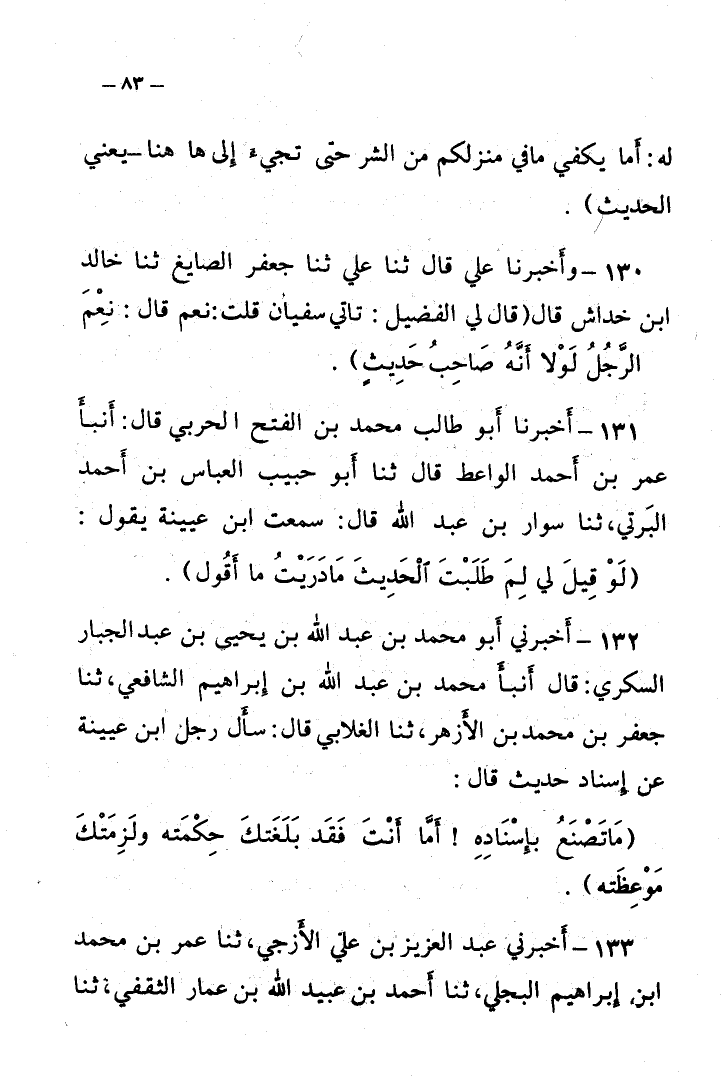 – ٨٣ –
له: أما يكفي مافي منزلكم من الشر حتى تجيء إلى ها هنا–يعني
الحديث) .
١٣٠ –وأخبرنا علي قال ثنا علي ثنا جعفر الصايغ ثنا خالد
ابن خداش قال(قال لي الفضيل : تاتي سفيان قلت:نعم قال : نِعْمَ
الرَّجُلُ لَوْلا أَنَّهُ صَاحِبُ حَدِيثٍ) .
١٣١ –أخبرنا أبو طالب محمد بن الفتح الحربي قال: أنبأ
عمر بن أحمد الواعظ قال ثنا أبو حبيب العباس بن أحمد
البَرتي، ثنا سوار بن عبد الله قال: سمعت ابن عيينة يقول :
(لَوْ قِيلَ لي لِمَ طَلَبْتَ ٱلْحَدِيثَ مَادَرَيْتُ ما أَقُول) .
١٣٢ –أخبرني أبو محمد بن عبد الله بن يحيى بن عبد الجبار
السكري: قال أنبأ محمد بن عبد الله بن إبراهيم الشافعي، ثنا
جعفر بن محمد بن الأزهر، ثنا الغلابي قال: سأل رجل ابن عيينة
عن إسناد حديث قال :
(مَاتَصْنَعُ بإِسْنَادِهِ ! أَمَّا أَنْتَ فَقَد بَلَغَتكَ حِكْمَته ولَزِمَتْكَ
مَوْعِظَته) .
١٣٣ –أخبرني عبد العزيز بن عليّ الأزجي، ثنا عمر بن محمد
ابن إبراهيم البجلي، ثنا أحمد بن عبيد الله بن عمار الثقفي، ثنا